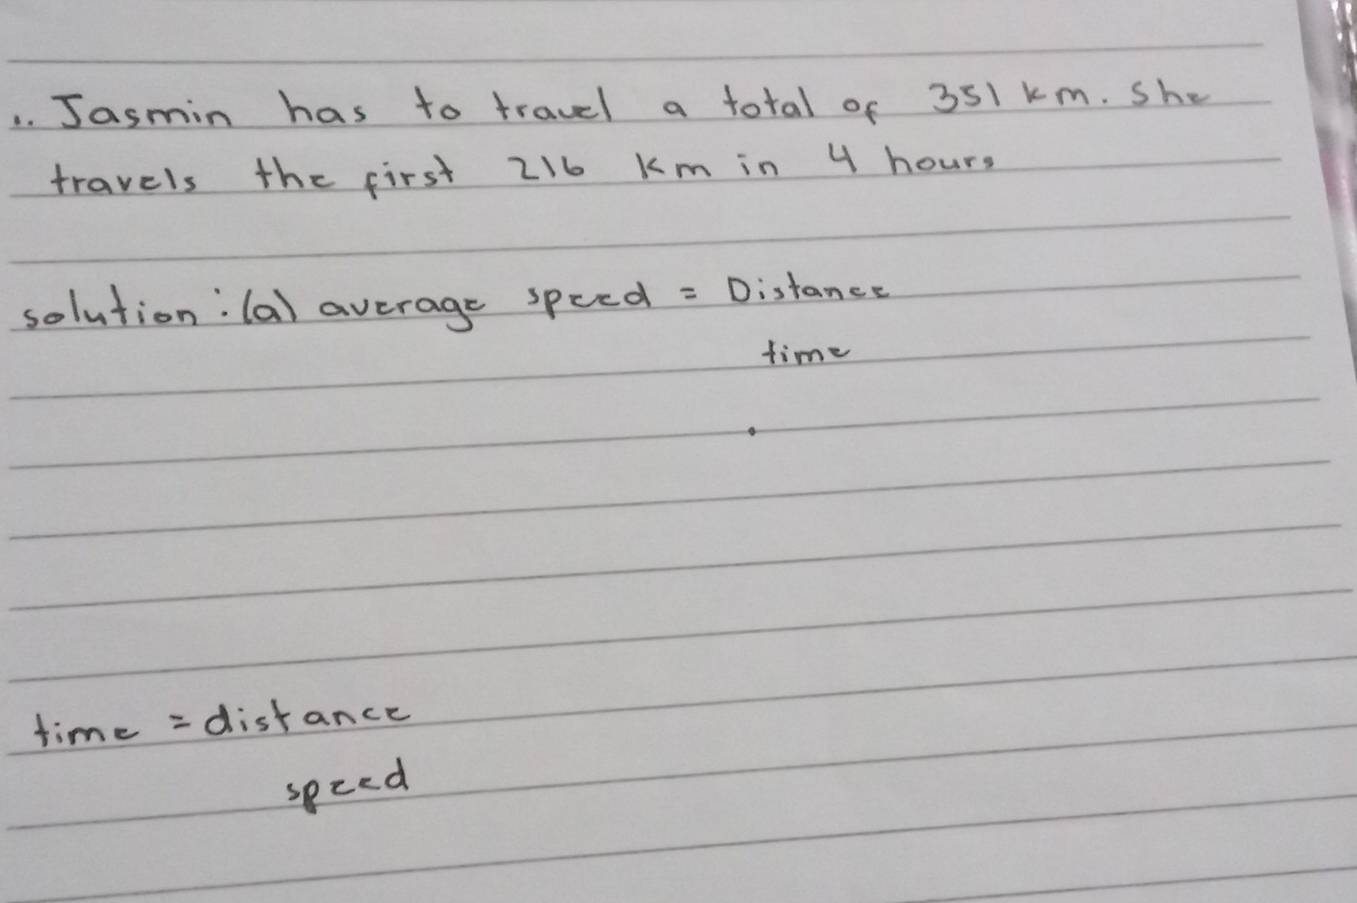 1. Jasmin has to travel a total of 351 km. She
travels the first 216 km in 4 hours
solution : (a) average speed = Distance
time
time = distance
speed